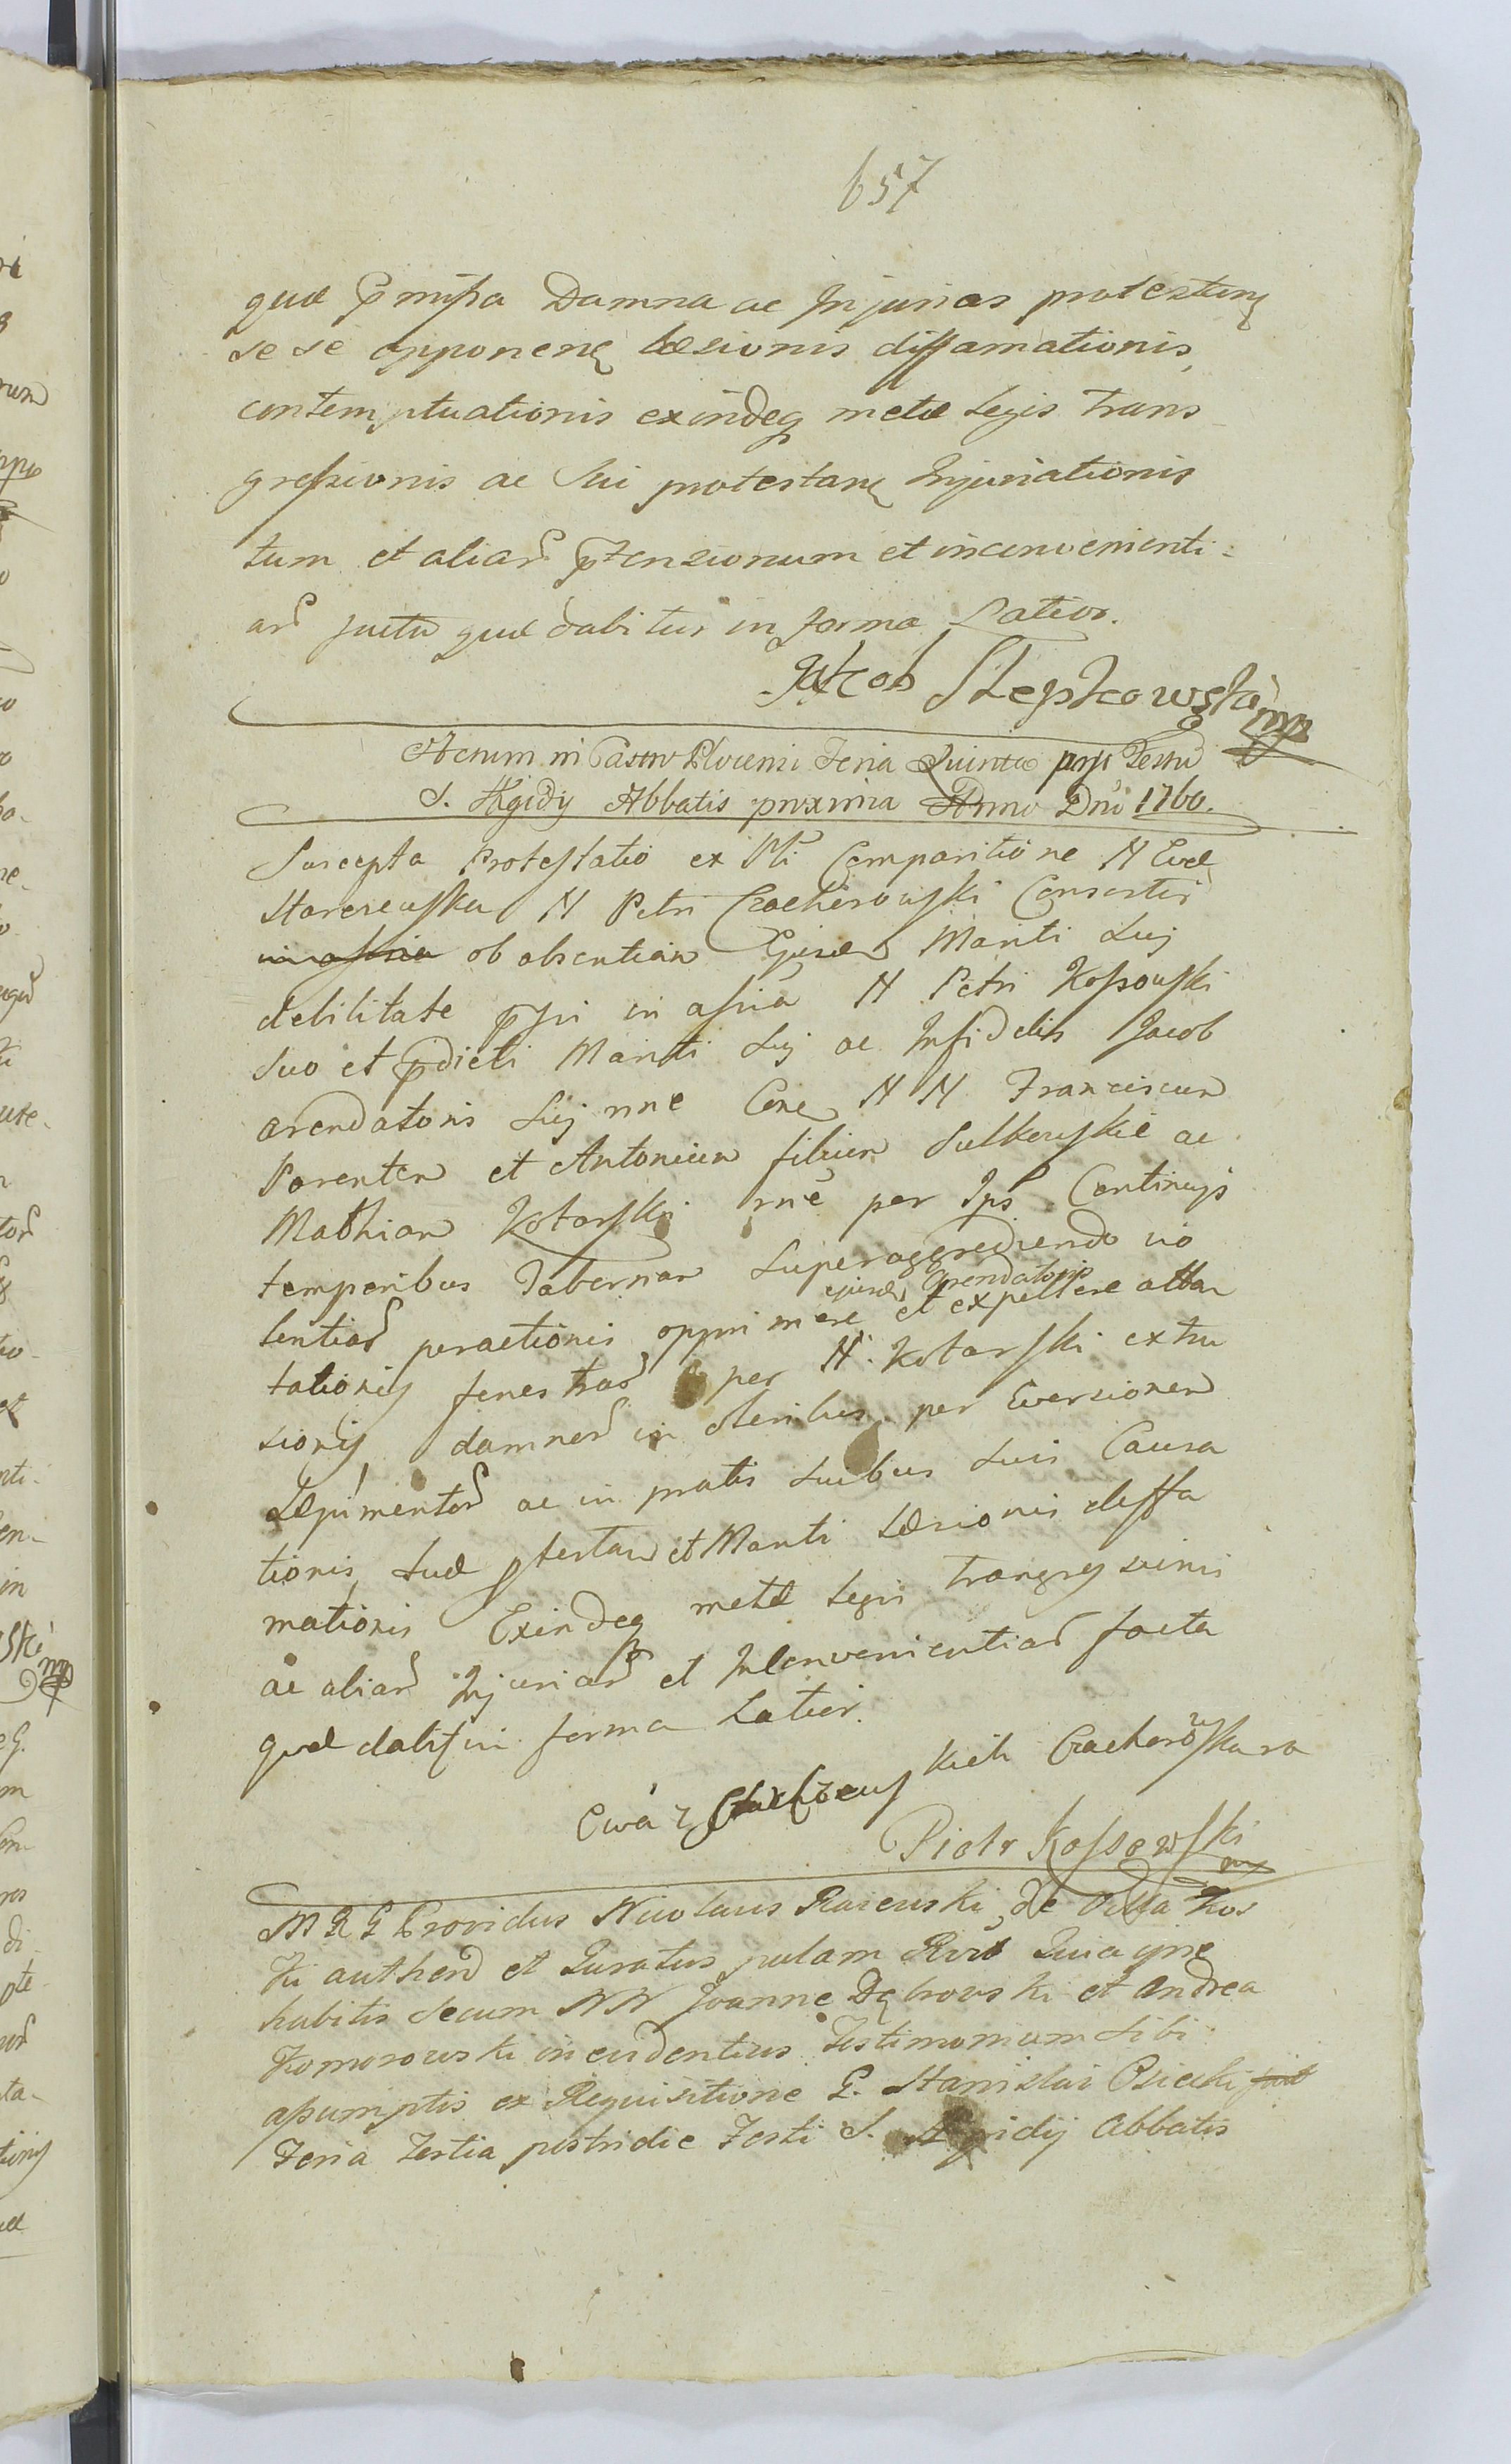 657
quæ p̄missa Damna ac Injurias protestans
sese opponens læsionis diffamationis,
contemptuationis exindeq metæ Legis trans
gressionis ac sui protestans Injuriationis
tum et aliar p̄tensionum et inconvenienti-
ar facta quæ dabitur in forma Latior.
Jakob Stępkowski mp
Actum in Castro Plocensi Feria Quinta post Festū
S. Ægidij Abbatis proxima Anno Dni 1760.
Suscepta Protestatio ex Pti Comparitione N Evæ
Starczewska N Petri Czacherowski Consortis
ob absentiam Ejusd Mariti Suj
debilitate in assia N Petri Kossowski
suo et p̄dicti Mariti Suj ac Infidelis Jacob
arendatoris Suj nne Cone N N Franciscum
Parentem et Antonium filium Sulkowskie ac
Mathiam Kotarski rne per Ips Continuis
temporibus Tabernam Superaggrediendo vio
ejusd Arendatoris
lentiar peractionis opprimere et expellere atten
tationis fenestrar per N. Kotarski extru
sionis damnor in oleribus per Eversionem
Sæpimentor ac in pratis suibus suis Causa
tionis suæ et Mariti Læsionis diffa
mationis Exindeq metæ Legis transgressionis
ac aliar Injuriar et Inconvenientiar facta
quæ dabit in forma Latior.
Ewa z Starczews kich Czacherowska ra
Piotr Kossowski mp
M R G Providus Nicolaus Raszewski, de Villa Kos
ki authen et Juratus palam Rvit Quia ipse
habitis secum NN Joanne Dębrowski et Andrea
Komorowski in evidentius Testimonium sibi
assumptis ex Requisitione G. Stanislai Osiecki
Feria Tertia postridie Festi S. Ægidij Abbatis